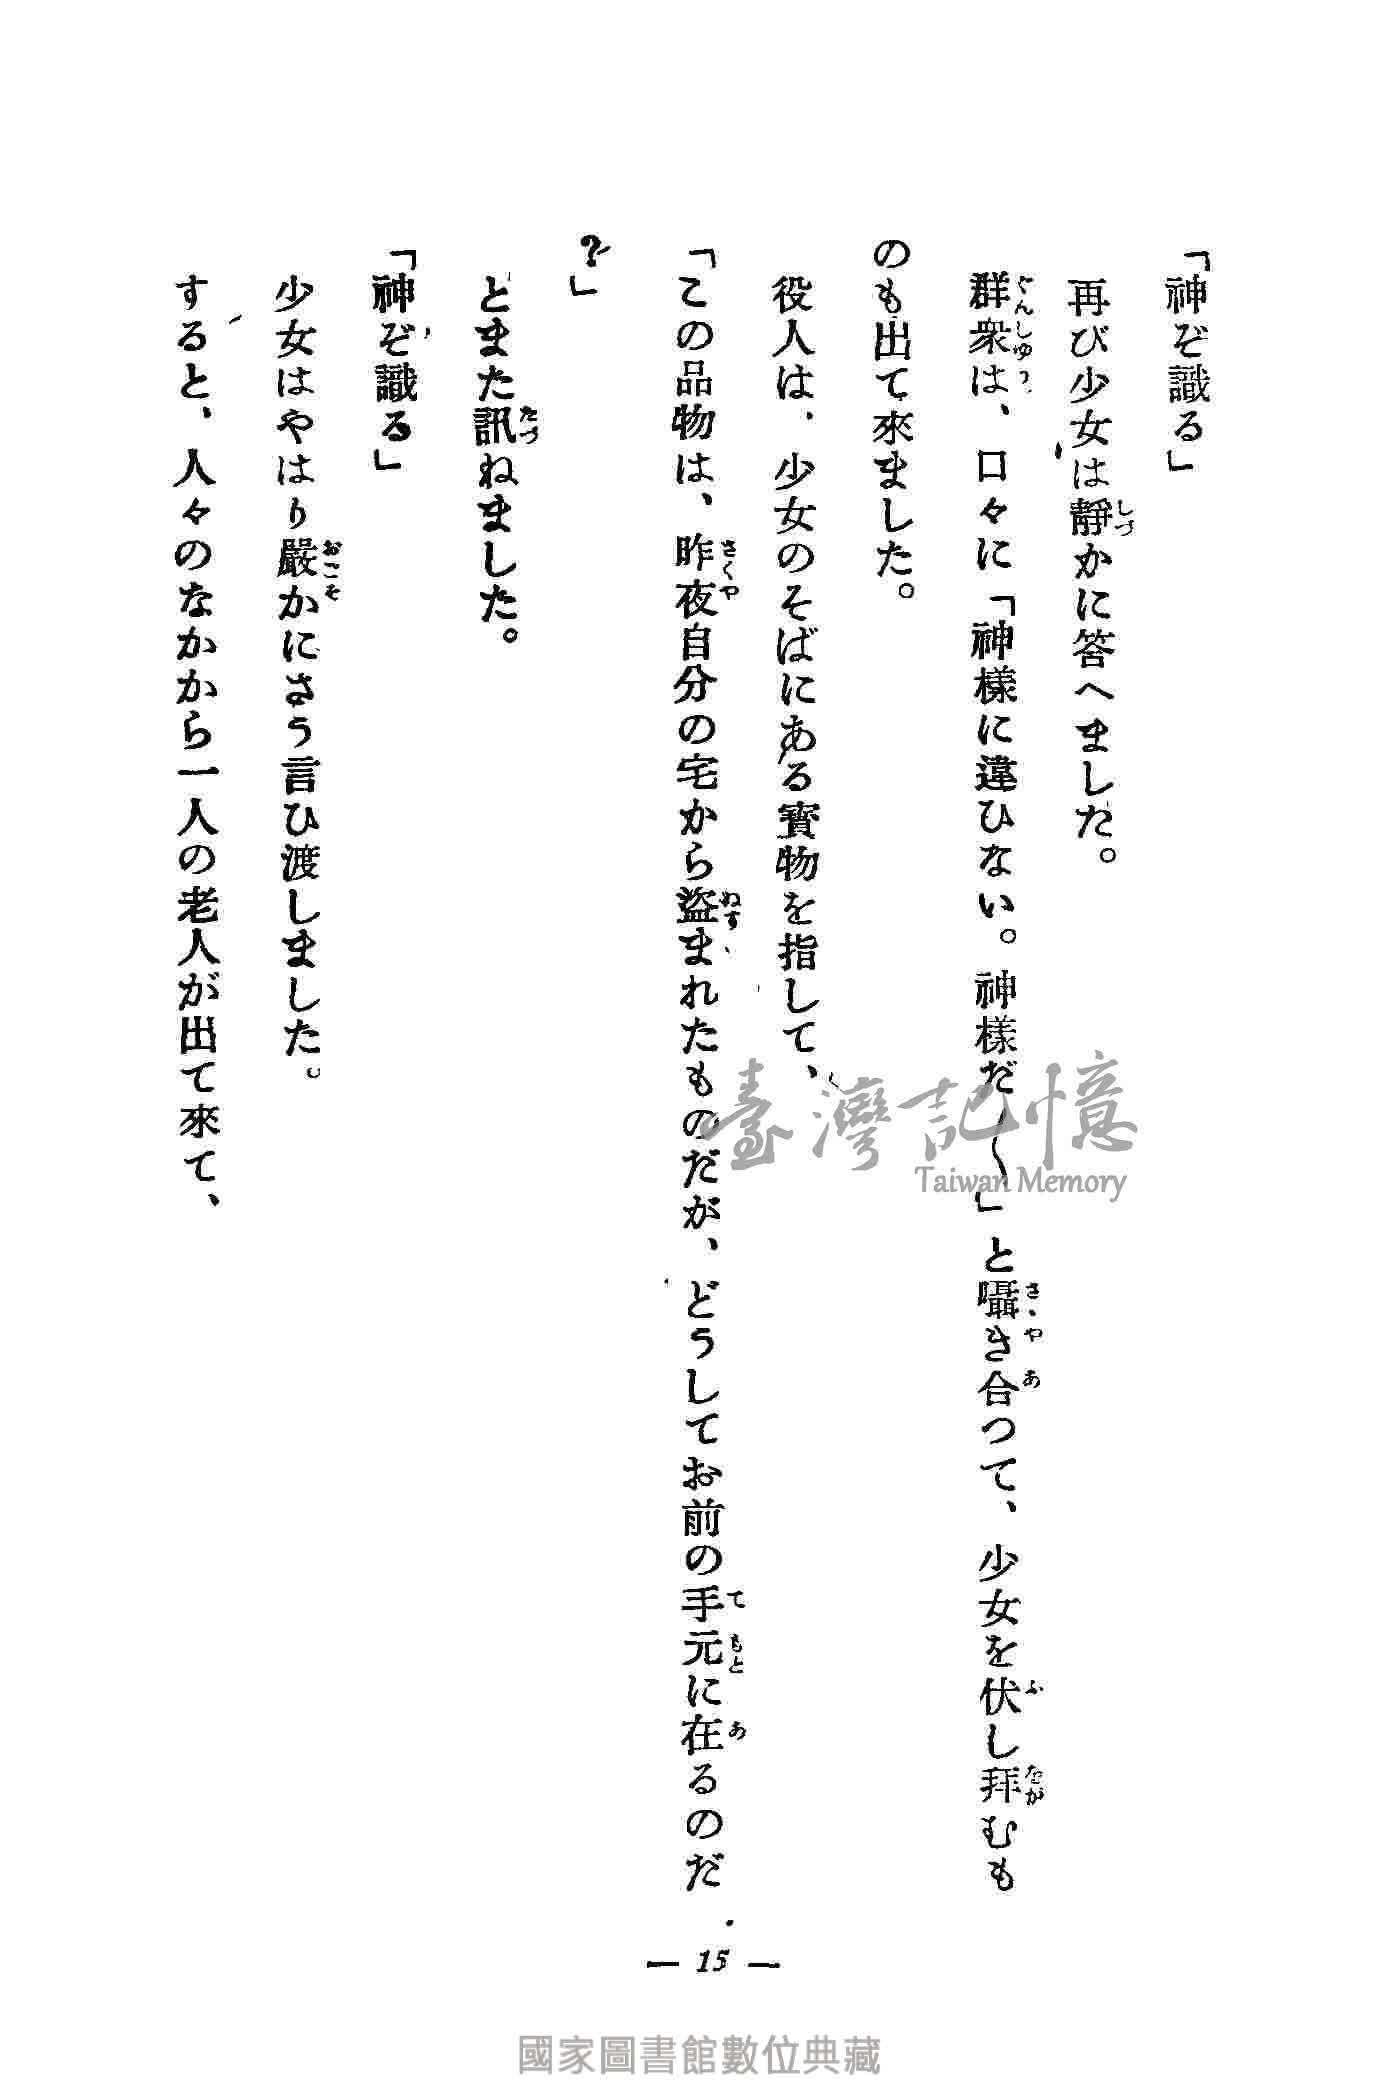 「神ぞ識る」
再び少女は靜かに答へました。
群衆は、口々に「神樣に違ひない。神樣だ〱」と囁き合つて、少女を伏し拜むも
のも出て來ました。
役人は、少女のそばにある寶物を指して、
「この品物は、昨夜自分の宅から盜まれたものだが、どうしてお前の手元に在るのだ
?」
とまた訊ねました。
「神ぞ識る」
少女はやはり嚴かにさう言ひ渡しました。
すると、人々のなかから一人の老人が出て來て、
— 15 —
臺灣記憶
Taiwan Memory
國家圖書館數位典藏